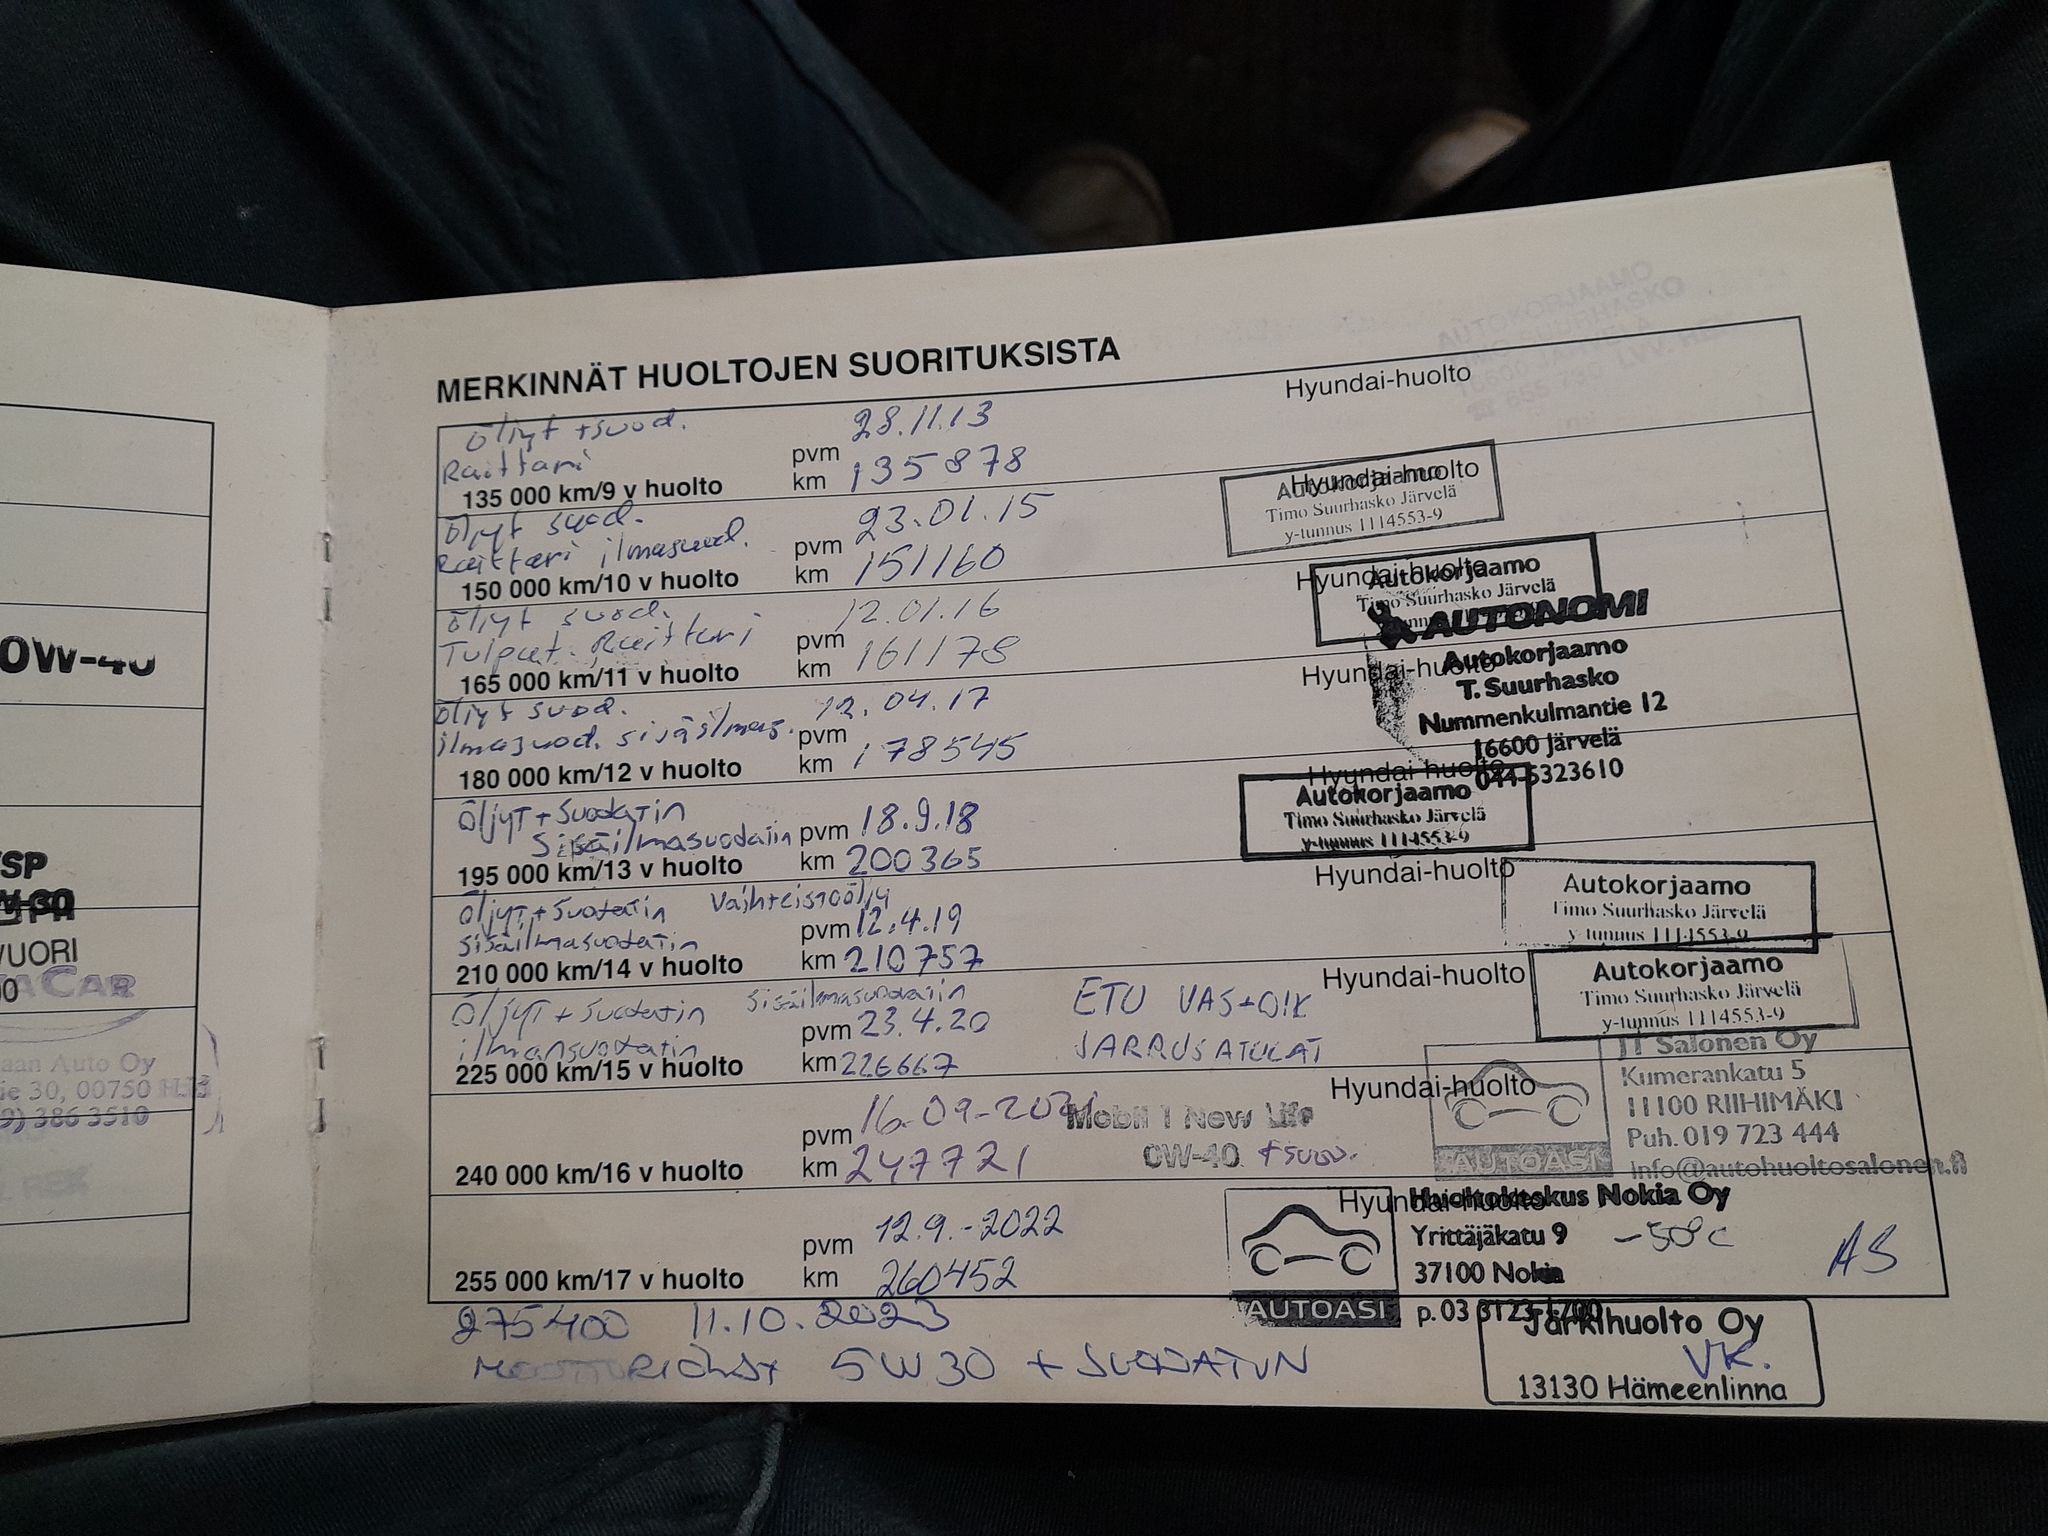 0W-40
SP
VUORI
ACAR
aan Auto Oy
ie 30, 00750 HKI
9) 386 3510
MERKINNÄT HUOLTOJEN SUORITUKSISTA
Hyundai-huolto
AUTOKORJAAMO
Öljyt + suod.
Raittari
pvm 28.11.13
135 000 km/9 v huolto km 135878
Hyundai-huolto
Autokorjaamo
Timo Suurhasko Järvelä
y-tunnus 1114553-9
Öljyt suod.
Raittari ilmasuod.
pvm 23.01.15
150 000 km/10 v huolto km 151160
Hyundai-huolto
Autokorjaamo
Timo Suurhasko Järvelä
Öljyt suod.
Tulpat. Raittari
pvm 12.01.16
165 000 km/11 v huolto km 161178
AUTONOMI
Hyundai-huolto
Autokorjaamo
T. Suurhasko
Nummenkulmantie 12
16600 Järvelä
044-5323610
Öljyt suod.
ilmasuod. sisäilmas.
pvm 12.04.17
180 000 km/12 v huolto km 178545
Hyundai-huolto
Autokorjaamo
Timo Suurhasko Järvelä
y-tunnus 1114553-9
Öljyt + Suodatin
Sisäilmasuodatin
pvm 18.9.18
195 000 km/13 v huolto km 200365
Hyundai-huolto
Autokorjaamo
Timo Suurhasko Järvelä
y-tunnus 1114553-9
Öljyt + Suodatin Vaihteistoöljy
Sisäilmasuodatin
pvm 12.4.19
210 000 km/14 v huolto km 210757
Hyundai-huolto
Autokorjaamo
Timo Suurhasko Järvelä
y-tunnus 1114553-9
Öljyt + Suodatin Sisäilmasuodatin
ilmansuodatin
pvm 23.4.20
225 000 km/15 v huolto km 226667
ETU VAS+OIK
JARRUSATULAT
Hyundai-huolto
JT Salonen Oy
Kumerankatu 5
11100 RIIHIMÄKI
Puh. 019 723 444
info@autohuoltosalonen.fi
AUTOASI
pvm 16-09-2021
240 000 km/16 v huolto km 247721
Mobil 1 New Life
0W-40 + suod.
Hyundai-huolto
Huoltokeskus Nokia Oy
Yrittäjäkatu 9
37100 Nokia
p. 03 3123 1700
AUTOASI
-50°C
AS
pvm 12.9.-2022
255 000 km/17 v huolto km 260452
275400 11.10.2023
MOOTTORIÖLJY 5W30 + SUODATUN
Järkihuolto Oy
VK.
13130 Hämeenlinna